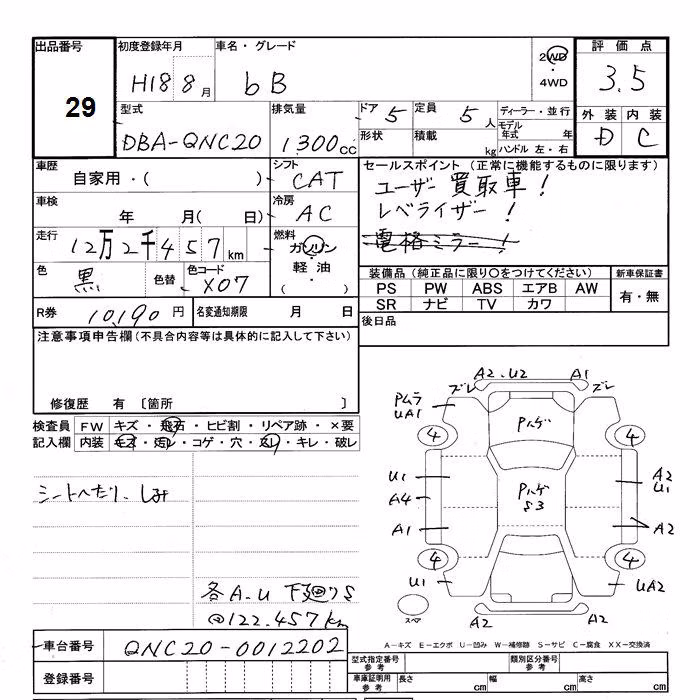 出品番号 初度登録年月 車名・グレード 2WD ・ 4WD 評価点
29 H18 8月 bB 3.5
型式 排気量 ドア 5 定員 5人 ディーラー・並行 外装 内装
DBA-QNC20 1,300cc 形状 積載 kg モデル年式 年 D C
ハンドル 左・右
車歴 自家用・( ) シフト CAT セールスポイント (正常に機能するものに限ります)
車検 年 月( 日) 冷房 AC ユーザー買取車!
レベライザー!
走行 12万2千457km 燃料 ガソリン・軽油・( ) 電格ミラー!
色 黒 色替 色コード X07 装備品 (純正品に限り○をつけてください) 新車保証書
PS PW ABS エアB AW 有・無
SR ナビ TV カワ
R券 10,190円 名変通知期限 月 日 後日品
注意事項申告欄(不具合内容等は具体的に記入して下さい)
修復歴 有 〔箇所 〕
検査員 FW キズ・飛石・ヒビ割・リペア跡・×要
記入欄 内装 キズ・汚レ・コゲ・穴・スレ・キレ・破レ
シートへたり、しみ
各A.U 下廻りS
@122.457km
A2.U2 A1
ズレ ズレ
PムラUA1
Pハゲ
4 4
U1 A2
U1
A4 Pハゲ
S3
A1 A2
4 4
U1 UA2
スペア A2 A2
A-キズ E-エクボ U-凹み W-補修跡 S-サビ C-腐食 XX-交換済
車台番号 QNC20-0012202
型式指定番号 参考 類別区分番号 参考
登録番号 車庫証明用 参考 長さ cm 幅 cm 高さ cm